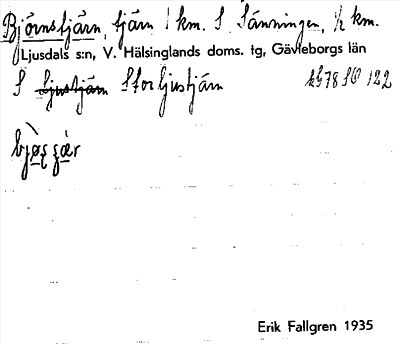 Björnstjärn, tjärn 1 km. S Sänningen, ½ km.
Ljusdals s:n, V. Hälsinglands doms. tg, Gävleborgs län
S Ljustjärn Storljustjärn
78 SO 122
Erik Fallgren 1935